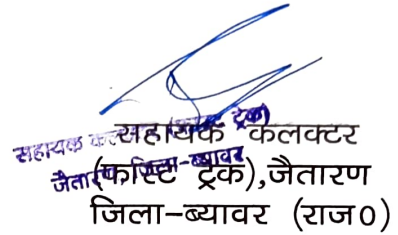 सहायक कलक्टर
(फास्ट ट्रेक),जैतारण
जिला-ब्यावर (राज०)
सहायक कल (फास्ट ट्रेक)
जैतारण, जिला-ब्यावर